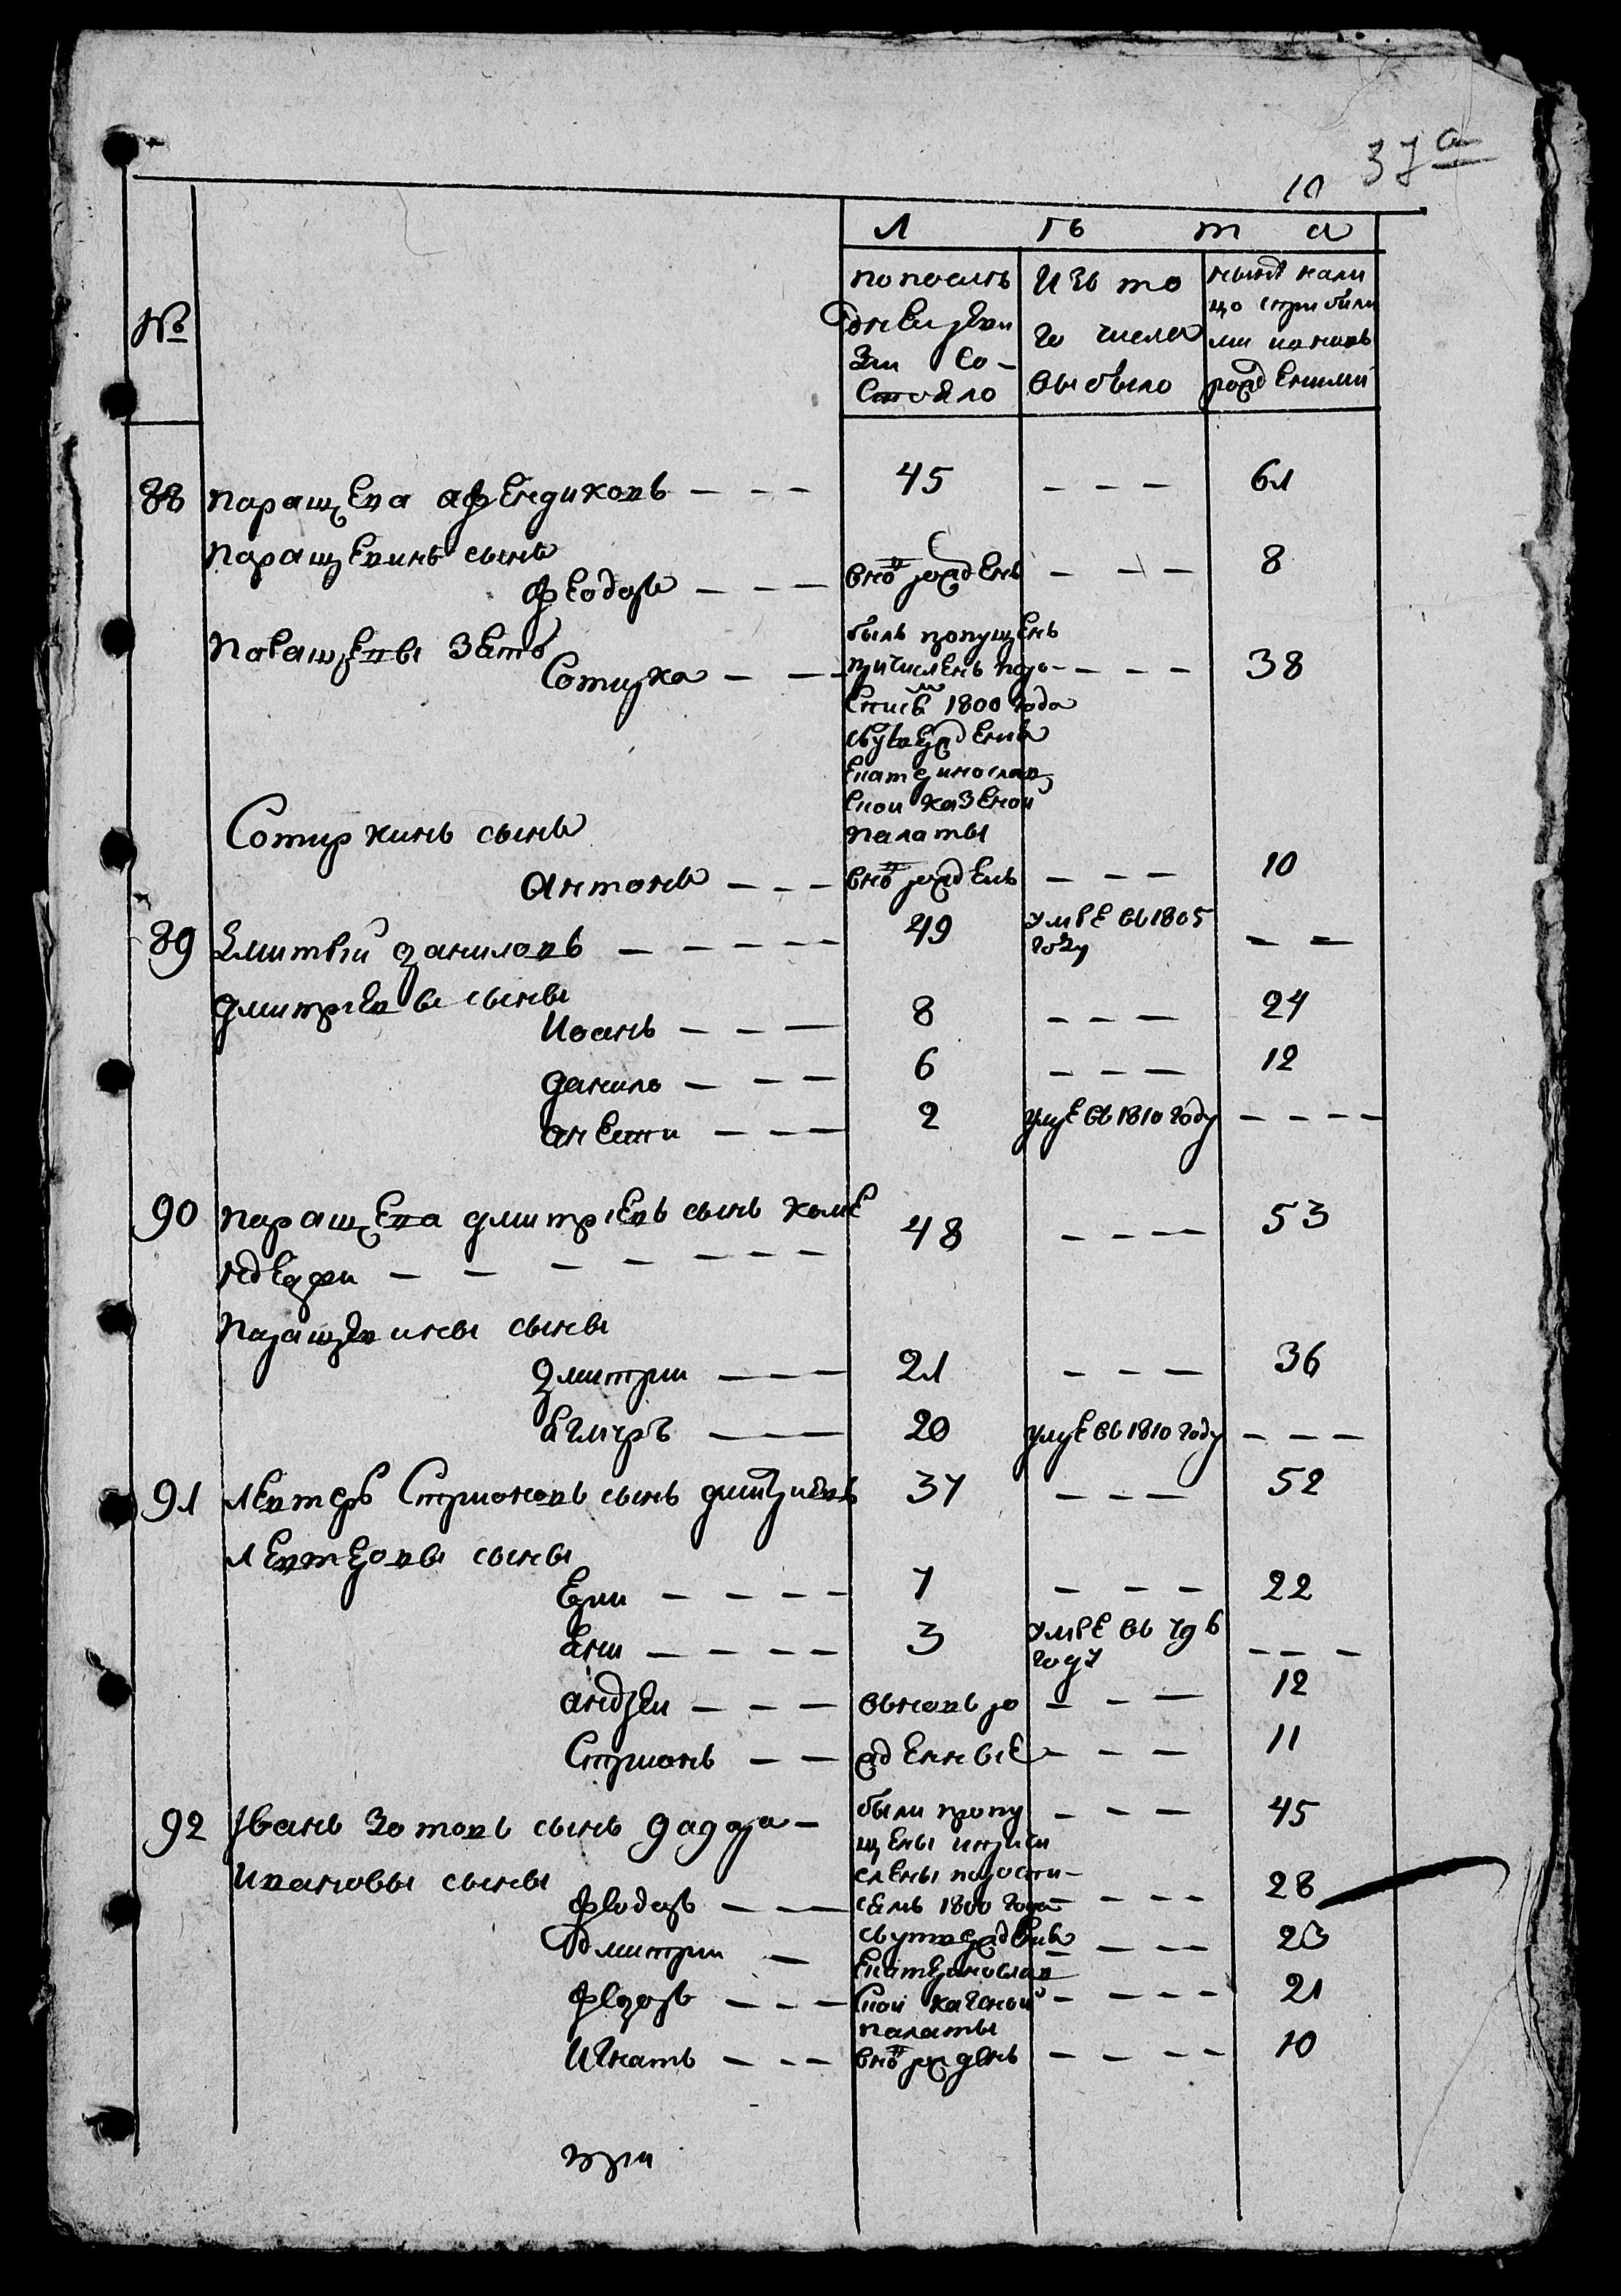 37а
10
Л ѣ т а
№
по послѣ
дней реви
зии со-
стояло
Изъ то
го числа
выбыло
ныне нали
цо с прибылы
ми и вновь
рожденными
88 паращева афендиковъ — — — 45 — — — 61
паращевинъ сынъ
феодоръ — — — внов рожденъ — — — 8
паращевы зять
Сотирка — — былъ пропущенъ
причисленъ по ро-
списѣ 1800 года
съутверждения
екатеринослав
ской казеной
палаты — — — 38
Сотиркинъ сынъ
антонъ — — — внов рожденъ — — — 10
89 дмитрiй даниловъ — — — — — 49 умре въ 1805
году — —
дмитрiевы сыны
Иоанъ — — — 8 — — — 24
данило — — — 6 — — — 12
анести — — — 2 умре въ 1810 году — — — —
90 паращева дмитрiевъ сынъ
— — — — — — — — 48 — — — 53
паращевины сыны
дмитрии — — — 21 — — — 36
— — — 20 умре въ 1810 году — — —
91 лефтеръ Стрионовъ сынъ 37 — — — 52
лефтеровы сыны
— — — — 7 — — — 22
— — — — 3 умре въ
году — — —
андреи — — — вновь ро — — — 12
Стрионъ — — жденные — — — 11
92 Iванъ Зотовъ сынъ — были пропу
щены и причи
слены по рости-
семъ 1800 года
съутверждения
екатеринослав
ской казеной
палаты — — — 45
Ивановы сыны
феодоръ — — — — — — 28
дмитрии — — — — — 23
федоръ — — — — — — — 21
Игнатъ — — — внов рожденъ — — — — 10
при